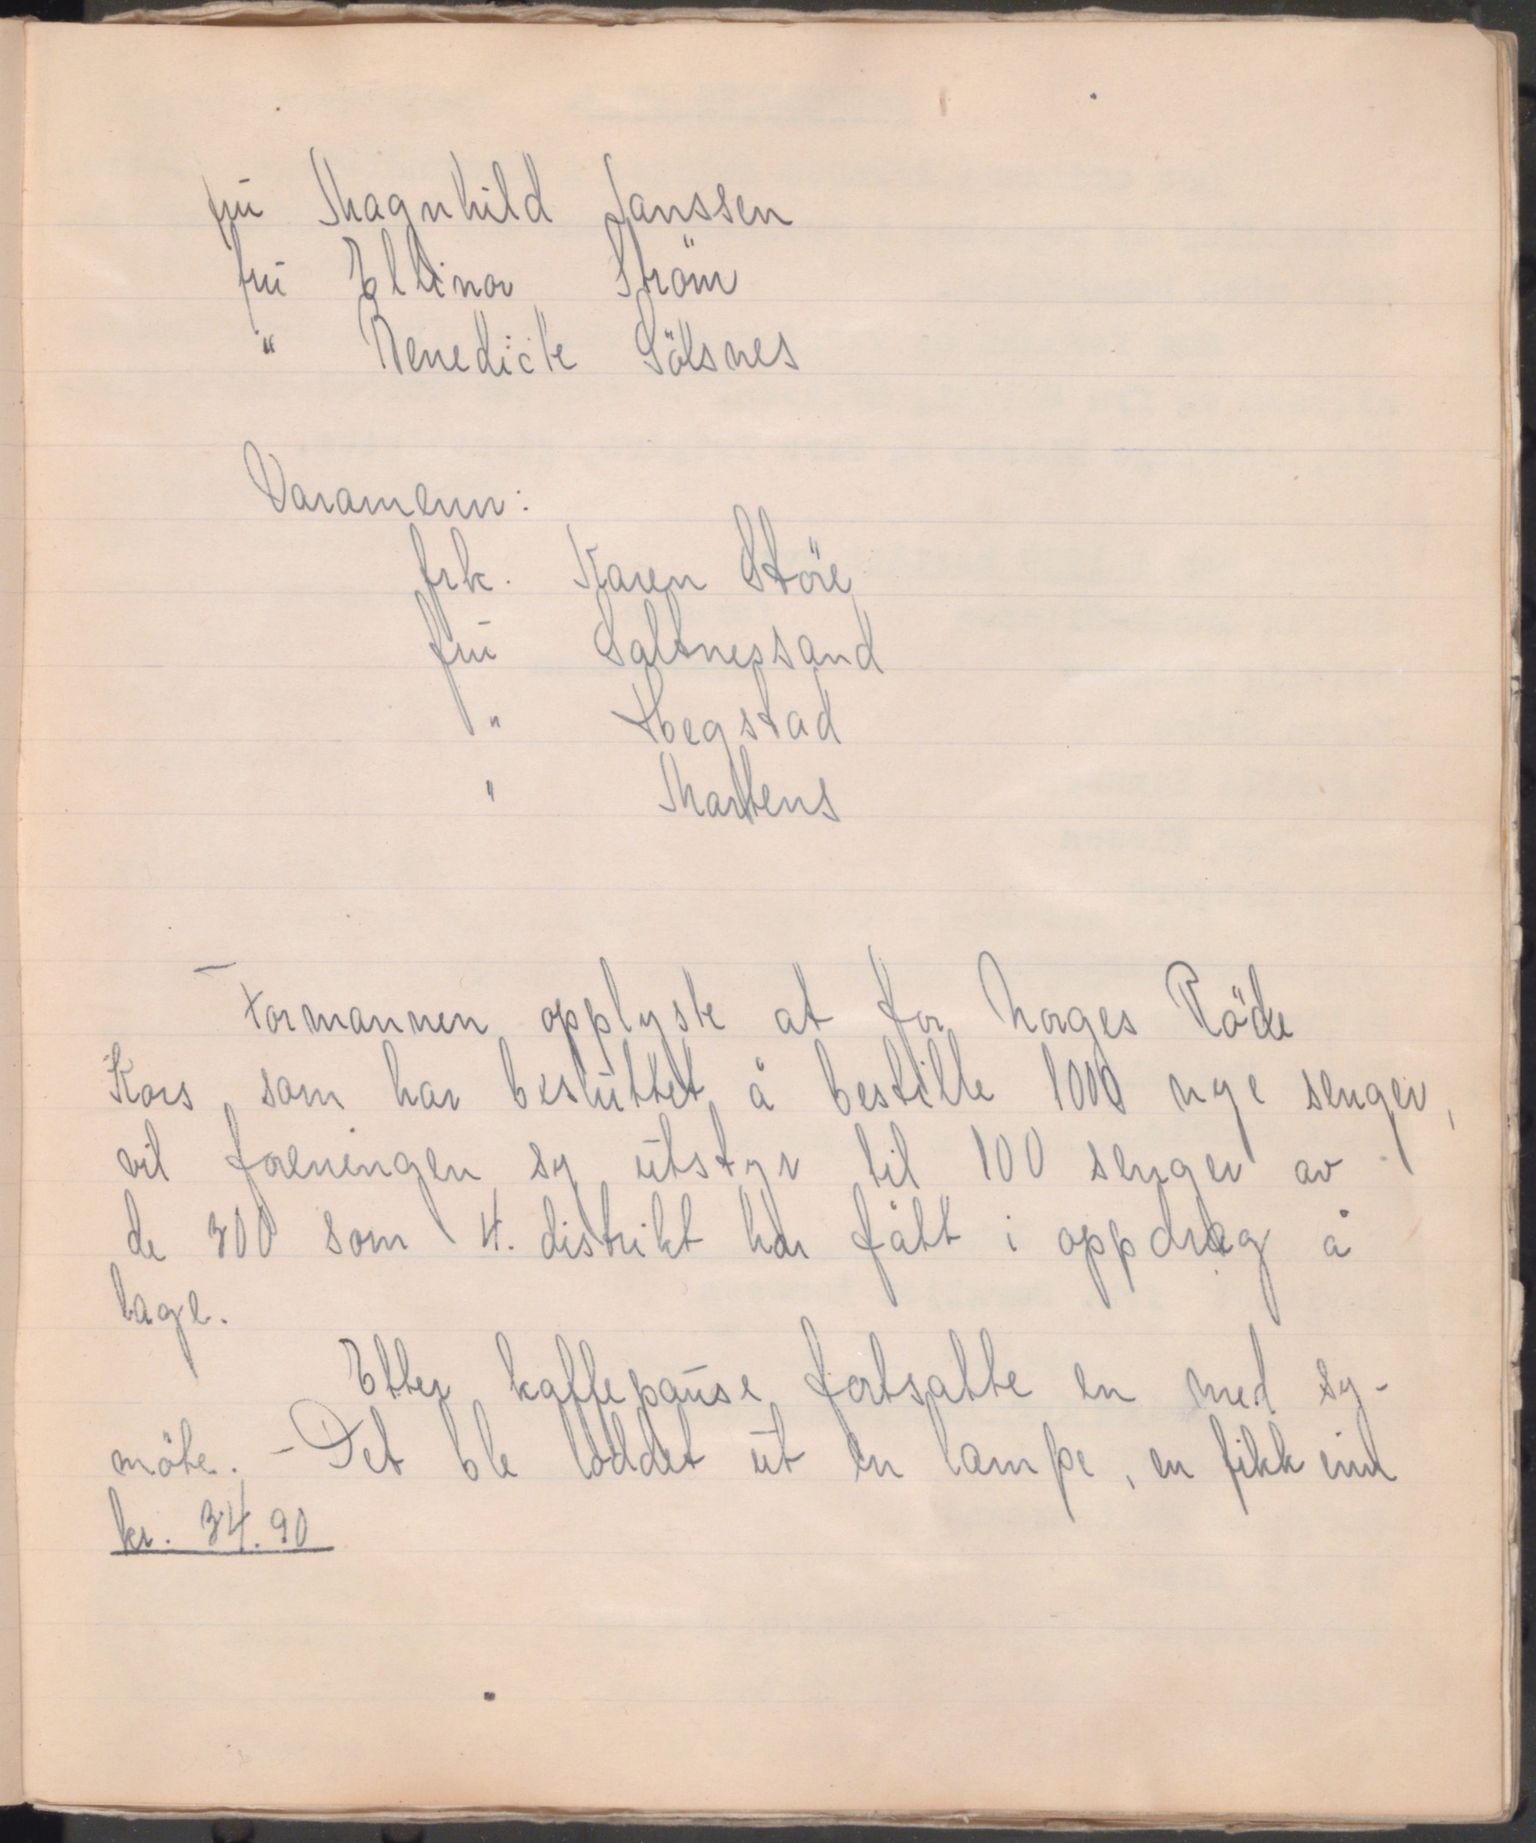 frū Magnhild Janssen
frū Ellinor Ström
" Benedicte Sölsnes
Varamenn:
frk. Karen Störe
frū Saltnessand
" Hegstad
" Martens
Formannen opplyste at for Norges Röde
Kors som har beslūttet å bestille 1000 nye senger,
vil foreningen sy ūtstyr til 100 senger av
de 300 som 4. distrikt har fått i oppdrag å
lage.
Etter kaffepaūse fortsatte en med sy-
möte. - Det ble loddet ūt en lampe, en fikk inn
kr. 34.90